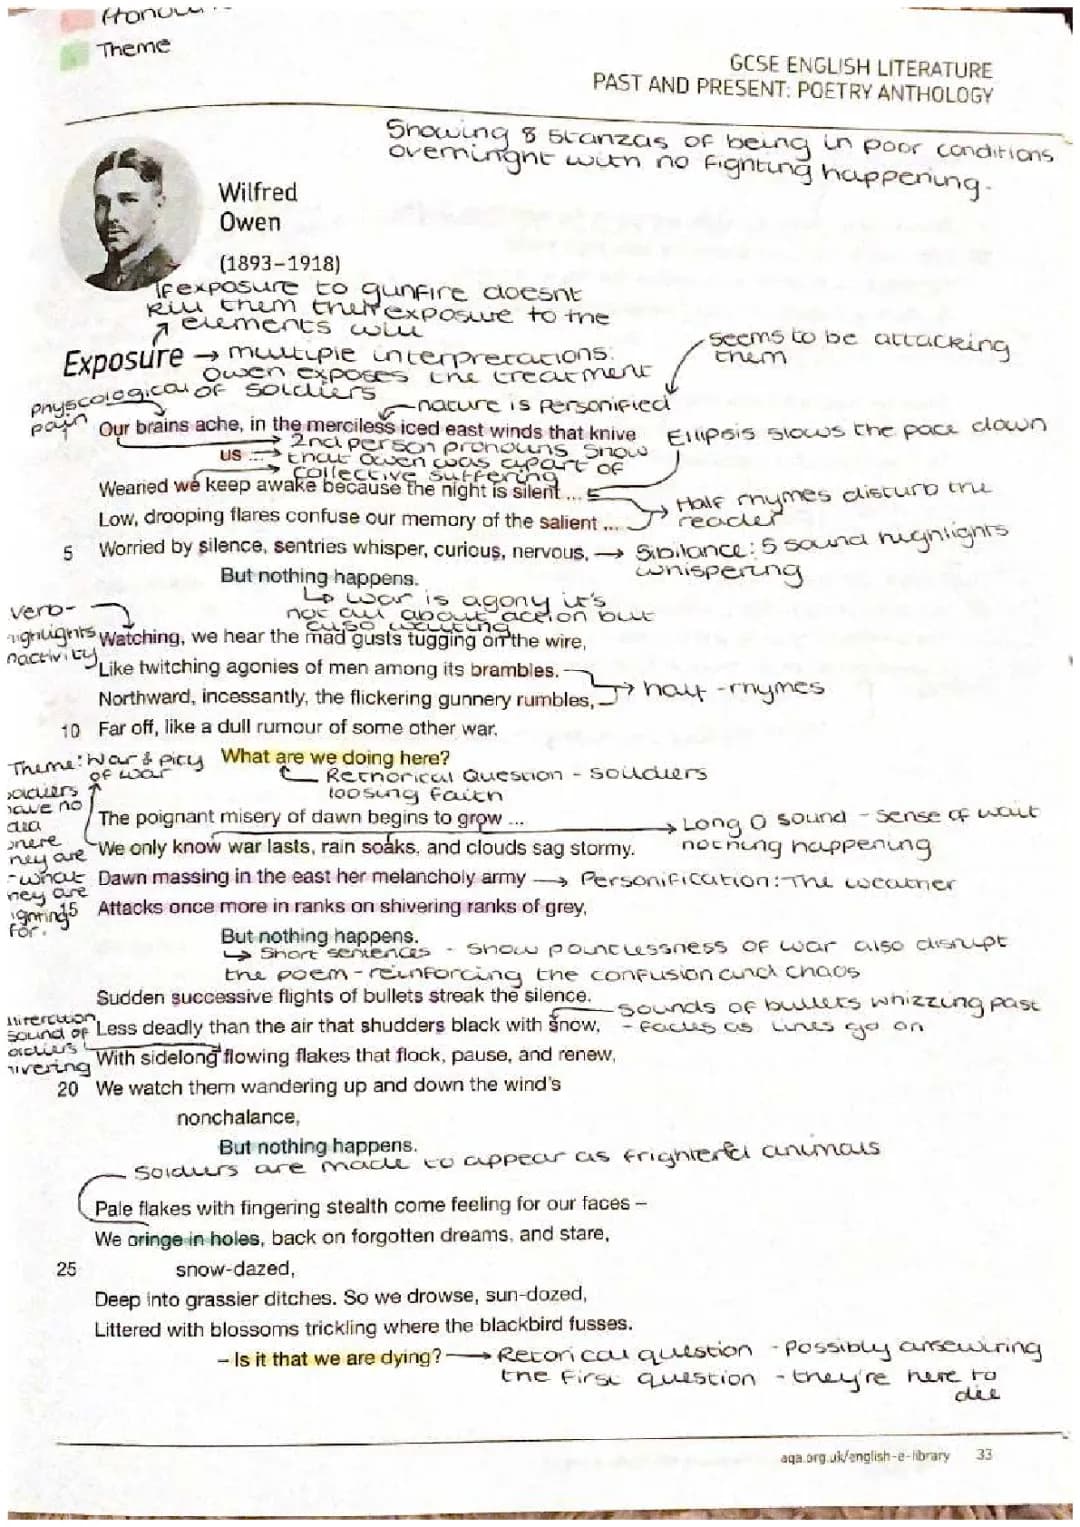 Theme
GCSE ENGLISH LITERATURE
PAST AND PRESENT: POETRY ANTHOLOGY
Showing 8 stanzas of being in poor conditions
overninght with no fighting happening.
Wilfred
Owen
(1893–1918)
If exposure to gunfire doesnt
kill them then exposure to the
elements will
Exposure → multiple interpretations:
Owen exposes the treatment
of soldiers
seems to be attacking
them
physcological
pain
nature is personified
Our brains ache, in the merciless iced east winds that knive
us ...
2nd person pronouns show
that Owen was apart of
collective suffering
Ellipsis slows the pace down
Wearied we keep awake because the night is silent ...
Low, drooping flares confuse our memory of the salient ...
Half rhymes disturb the
reader
5 Worried by silence, sentries whisper, curious, nervous, → Sibilance: S sound highlights
whispering
But nothing happens.
↳ war is agony it's
not all about action but
also waiting
verb-
highlights
nactivity
Watching, we hear the mad gusts tugging on the wire,
Like twitching agonies of men among its brambles.
Northward, incessantly, the flickering gunnery rumbles,
→ half-rhymes
10 Far off, like a dull rumour of some other war.
Theme: War & pity
of war
What are we doing here?
Rethorical Question - soildiers
loosing faith
soldiers
have no
idea
where
they are
- what
they are
ighting
for.
The poignant misery of dawn begins to grow ...
→ Long O sound - sense of wait
nothing happening
We only know war lasts, rain soaks, and clouds sag stormy.
Dawn massing in the east her melancholy army → Personification: The weather
15 Attacks once more in ranks on shivering ranks of grey,
But nothing happens.
↳ Short sentences - show pointlessness of war also disrupt
the poem - reinforcing the confusion and chaos
Sudden successive flights of bullets streak the silence.
Sounds of bullets whizzing past
- fades as lines go on
Less deadly than the air that shudders black with snow,
sound of
With sidelong flowing flakes that flock, pause, and renew,
20 We watch them wandering up and down the wind's
nonchalance,
But nothing happens.
Soldiers are made to appear as frightened animals
Pale flakes with fingering stealth come feeling for our faces –
We cringe in holes, back on forgotten dreams, and stare,
25 snow-dazed,
Deep into grassier ditches. So we drowse, sun-dozed,
Littered with blossoms trickling where the blackbird fusses.
– Is it that we are dying? → Retorical question - possibly answering
the first question - they're here to
die
aqa.org.uk/english-e-library 33